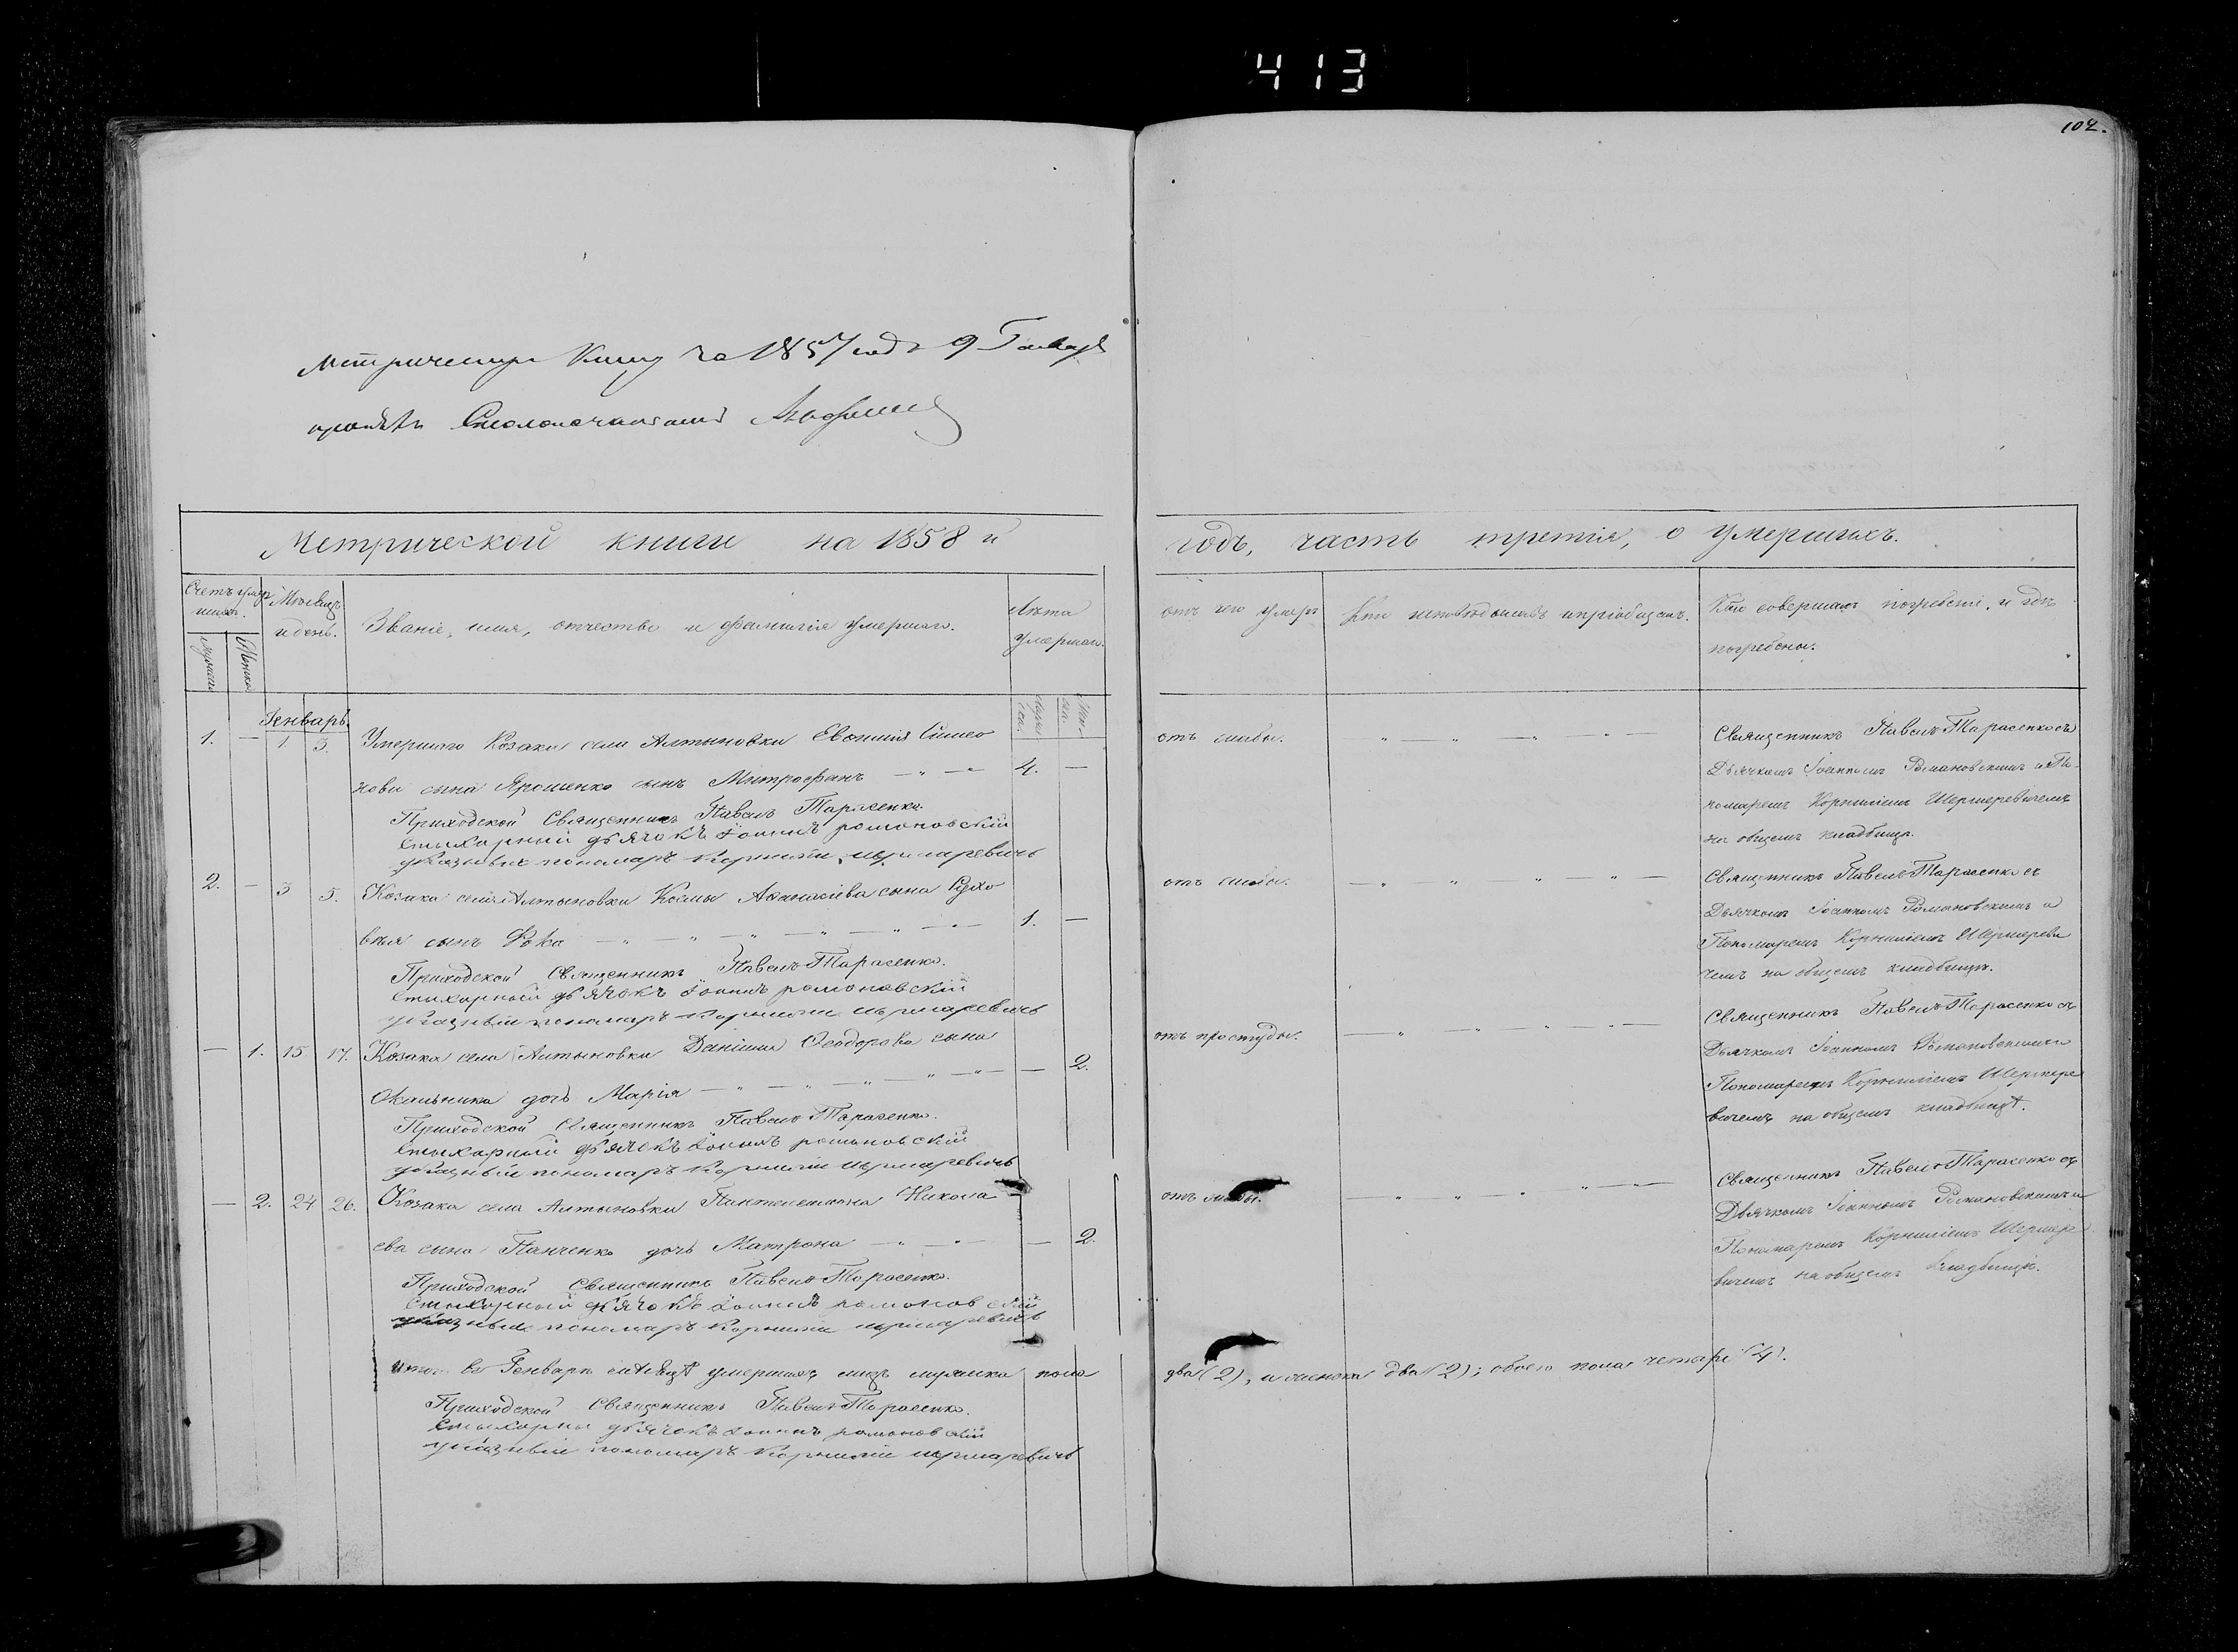 413
102.
Метрическую Книгу за 1857 годъ 9 Генваря
Метрической книги на 1858 й
годъ, часть третія, о умершихъ.
Счетъ умер
шихъ.
Мѣсяцъ
и день.
Званіе, имя, отчество и фамилія умершаго.
Лѣта
умершаго.
отъ чего умеръ
Кто исповѣдывалъ и пріобщалъ.
Кто совершалъ погребеніе, и гдѣ
погребены.
мужеска
Женска
Генварь.
1. — 1 3. Умершаго Козака села Алтыновки Евфимія Симео
нова сына Ярошенко сынъ Митрофанъ — „ — „ 4. —
Приходской Священникъ Павелъ Тарасенко.
Стихарный дьячокъ Іоаннъ романовскій
указный пономарь Корнилій шермаревичъ
отъ слабы. „ — „ — „ — „ —
Священникъ Павелъ Тарасенко съ
Дьячкомъ Іоанномъ Романовскимъ и По-
номаремъ Корниліемъ Шермеревичемъ
на общемъ кладбищѣ.
2. — 3 5. Козака села Алтыновки Космы Афанасіева сына
сынъ Фока — „ — „ — „ — „ — „ — „ 1. —
Приходской Священникъ Павелъ Тарасенко.
Стихарный дьячокъ Іоаннъ романовскій
указный пономарь Корнилій шермаревичъ
отъ слабы. — „ „ „ — „ —
Священникъ Павелъ Тарасенко съ
Дьячкомъ Іоанномъ Романовскимъ и
Пономаремъ Корниліемъ Шермереви
чемъ на общемъ кладбищѣ.
— 1. 15 17. Козака села Алтыновки Даніила Ѳеодорова сына
дочь Марія — „ — „ — „ — „ — „ — 2.
Приходской Священникъ Павелъ Тарасенко.
Стихарный дьячокъ Іоаннъ романовскій
указный пономарь Корнилій шермаревичъ
отъ простуды. — „ — „ „ — „ —
Священникъ Павелъ Тарасенко съ
Дьячкомъ Іоанномъ Романовскимъ и
Пономаремъ Корниліемъ Шермере
вичемъ на общемъ кладбищѣ.
— 2. 24 26. Козака села Алтыновки Пантелеимона Никола
ева сына Панченко дочь Матрона — „ — „ — 2.
Приходской Священникъ Павелъ Тарасенко.
Стихарный дьячокъ Іоаннъ романовскій
указный пономарь Корнилій шермаревичъ
отъ слабы. — „ „ „ „ — „ —
Священникъ Павелъ Тарасенко съ
Дьячкомъ Іоанномъ Романовскимъ и
Пономаремъ Корниліемъ Шермере
вичемъ на общемъ кладбищѣ.
Итого въ Генварѣ мѣсяцѣ умершихъ лицъ мужеска пола
два (2), и женска два (2); обоего пола четыри (4).
Приходской Священникъ Павелъ Тарасенко.
Стихарны дьячокъ Іоаннъ романовскій
указный пономарь Корнилій шермаревичъ